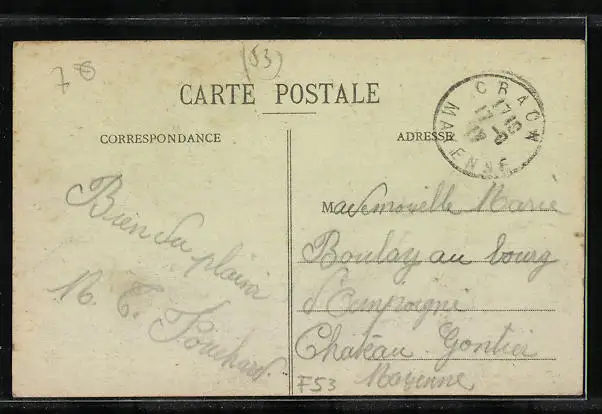 7
(53)
CARTE POSTALE
CRAON
17 10
17 -8
MAYENNE
CORRESPONDANCE
ADRESSE
Bien du plaisir
Mademoiselle Marie
Boulay au bourg
d'Ampoigné
Chateau-Gontier
Mayenne
F53